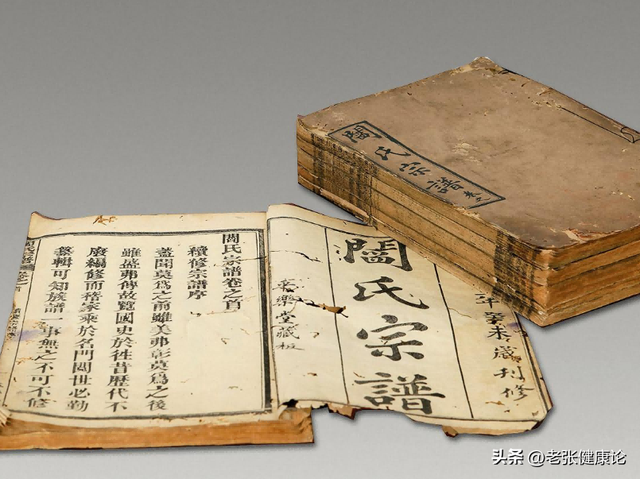 閻氏宗譜
未歲刊修
閻氏宗譜
樂堂藏板
閻氏宗譜卷之首
續修宗譜序
蓋聞莫爲之前雖美弗彰莫爲之後
雖盛弗傳故覽國史於徃昔歷代不
廢編修而稽家乘於名門閥世必勤
纂輯可知族譜一事無之不可不修
头条 @老张健康论